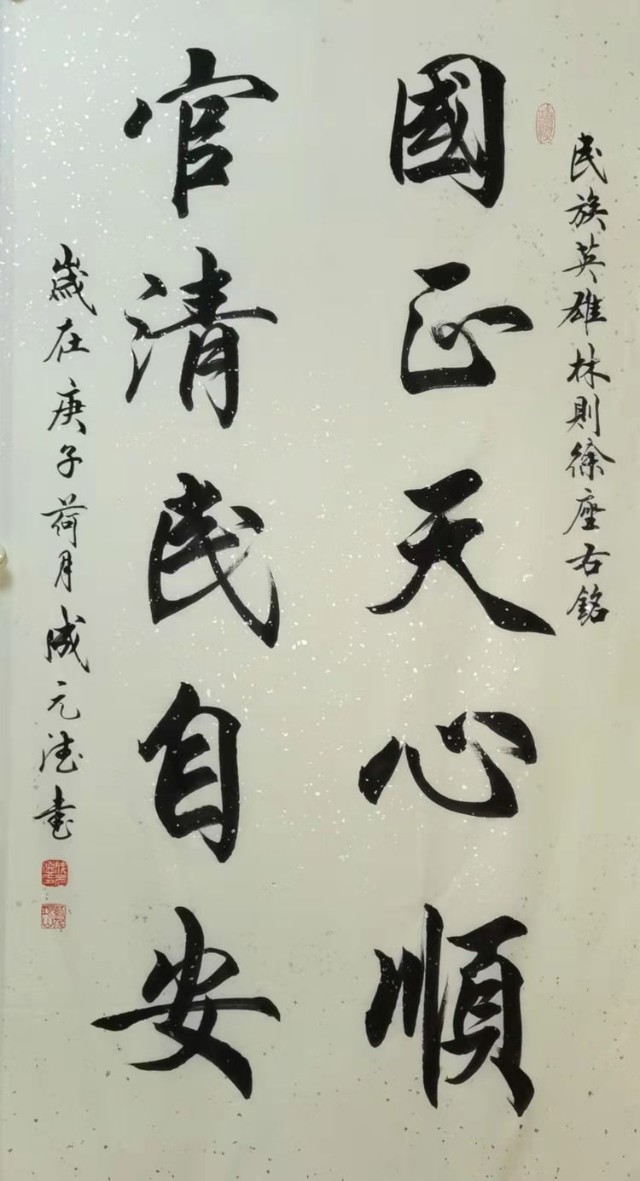 民族英雄林則徐座右銘
國正天心順
官清民自安
歲在庚子荷月成元德書